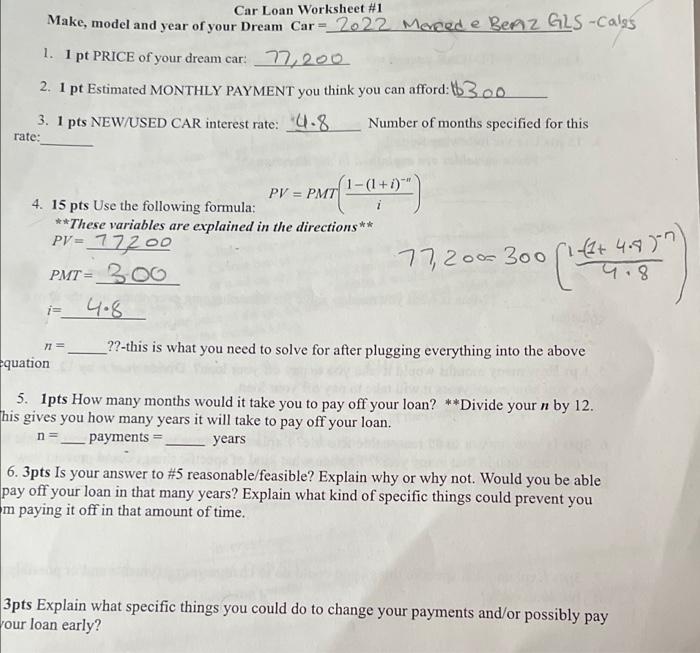 Car Loan Worksheet #1
Make, model and year of your Dream Car = 2022 Merced e Benz GLS -
1. 1 pt PRICE of your dream car: 77,200
2. 1 pt Estimated MONTHLY PAYMENT you think you can afford: $300
3. 1 pts NEW/USED CAR interest rate: 4.8 Number of months specified for this
rate:
4. 15 pts Use the following formula: PV = PMT((1-(1+i)^-n)/i)
**These variables are explained in the directions**
PV= 77200
77,200= 300 ((1-(1+ 4.8)^-n)/4.8)
PMT= 300
i= 4.8
n = ____??-this is what you need to solve for after plugging everything into the above
equation
5. 1pts How many months would it take you to pay off your loan? **Divide your n by 12.
his gives you how many years it will take to pay off your loan.
n = ___ payments = ____ years
6. 3pts Is your answer to #5 reasonable/feasible? Explain why or why not. Would you be able
pay off your loan in that many years? Explain what kind of specific things could prevent you
m paying it off in that amount of time.
3pts Explain what specific things you could do to change your payments and/or possibly pay
your loan early?